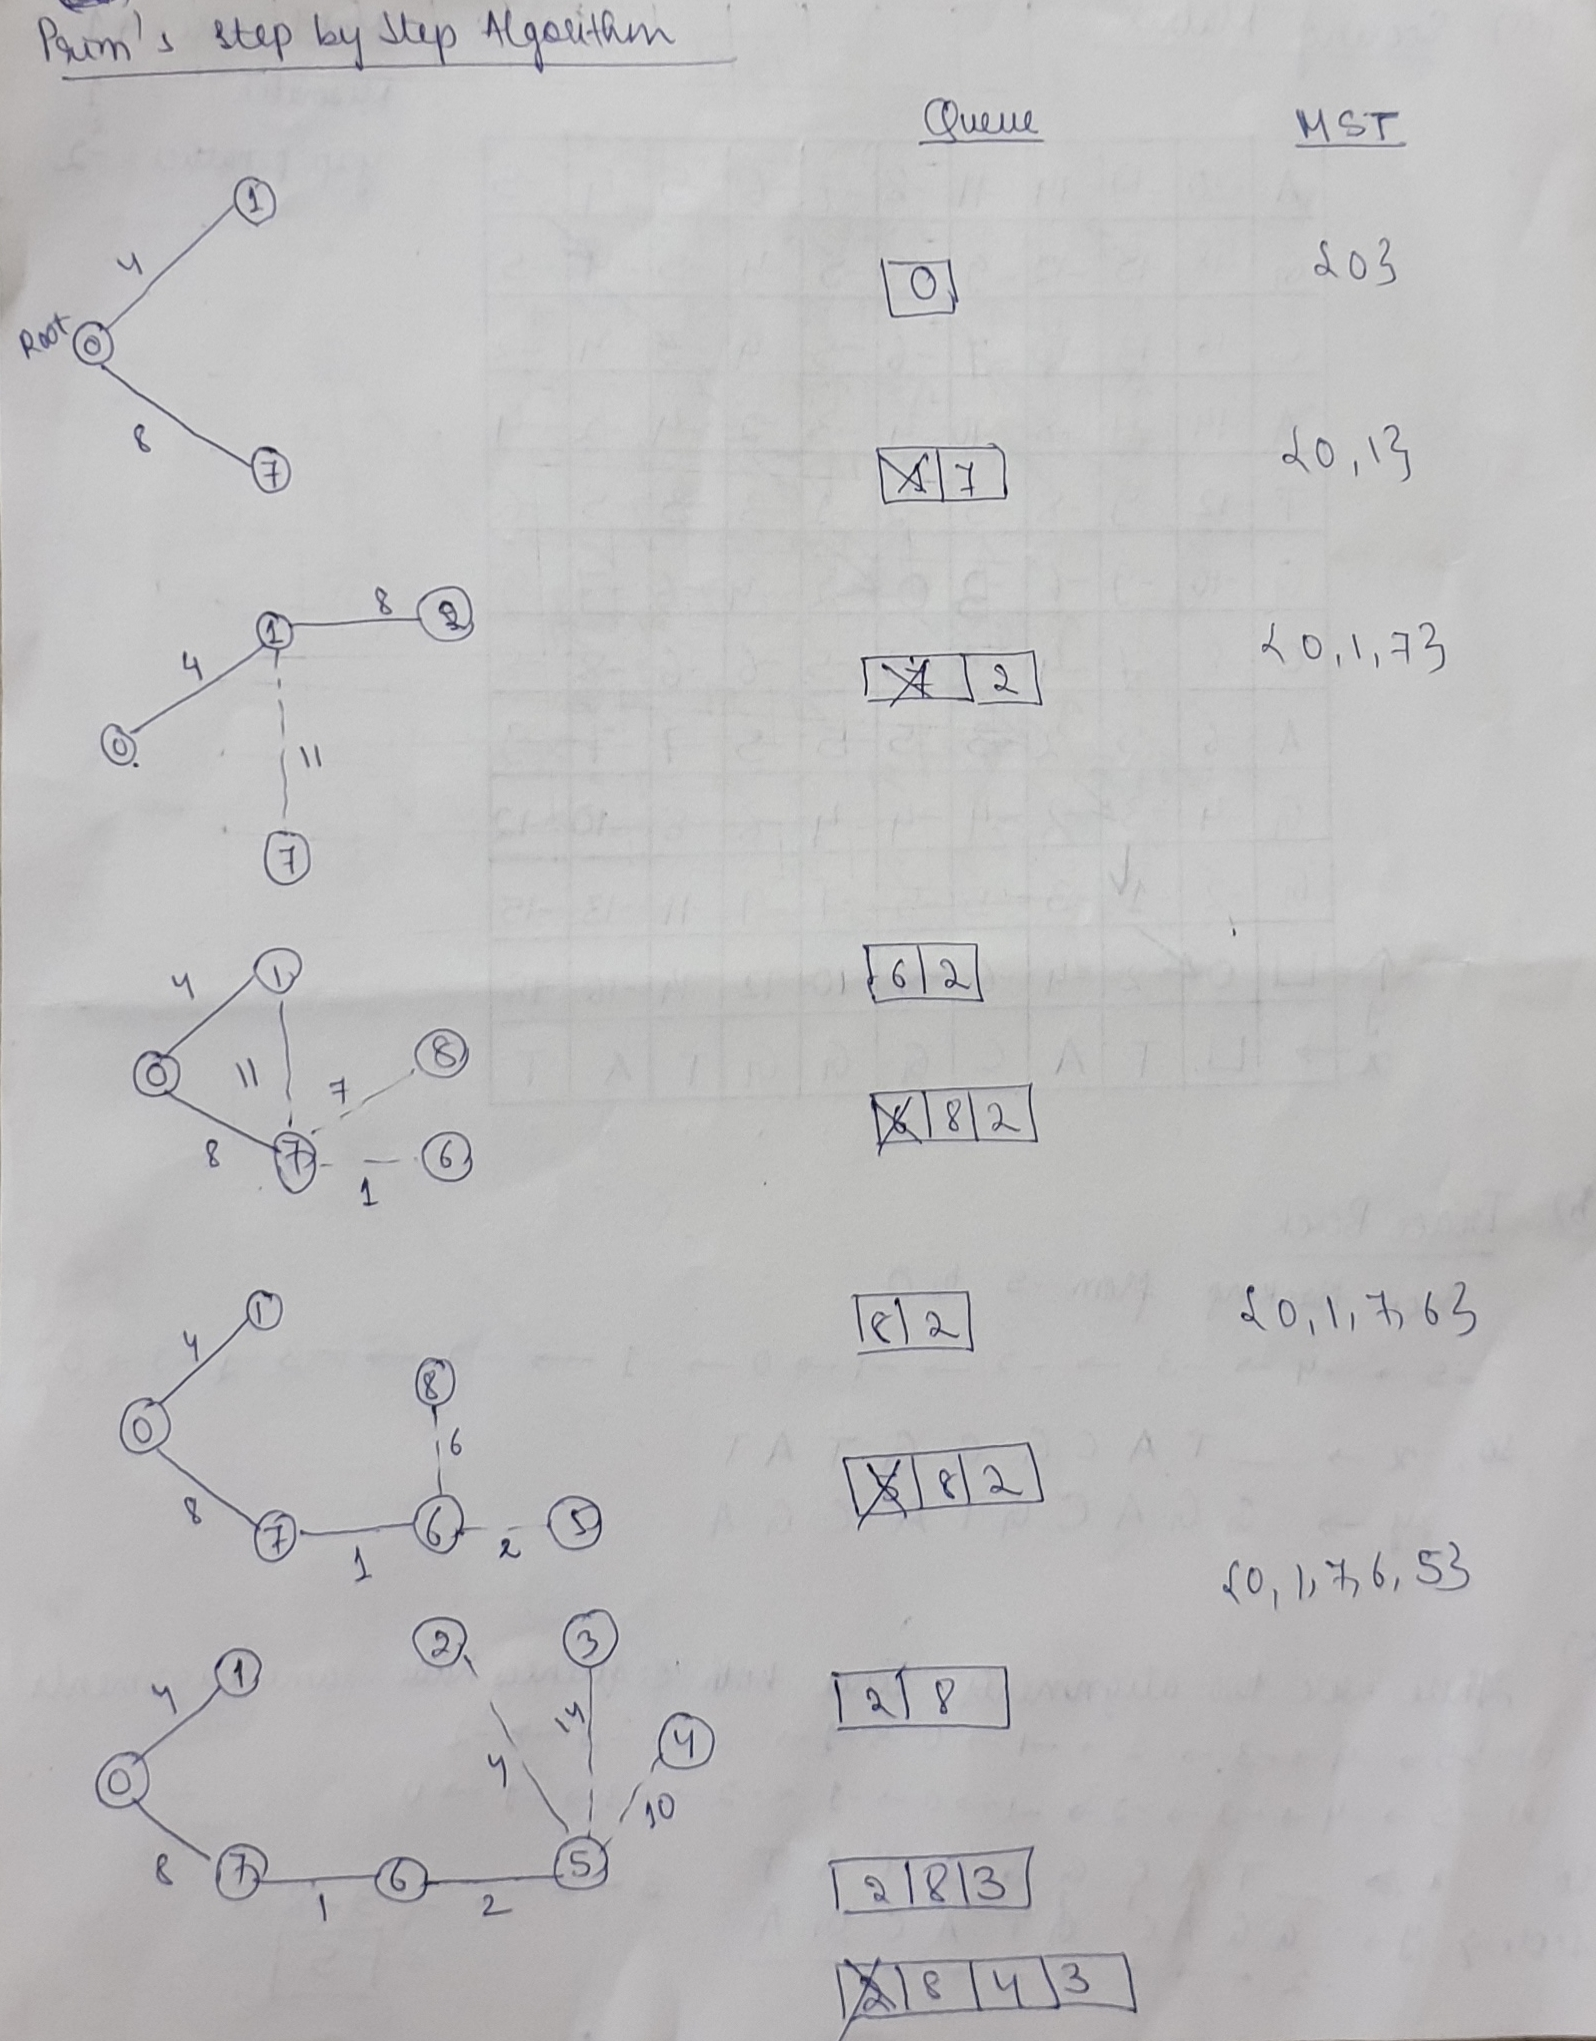 Prim's step by step Algorithm
Queue MST
1
4
Root 0
8
7
0 {0}
1 7 {0,1}
1 8 2
4
0
11
7
7 2 {0,1,7}
4 1
0 11 7 8
8 7 1 6
6 2
6 8 2
1
4
0
8
6
8 7 1 6 2 5
8 2 {0,1,7,6}
5 8 2
{0,1,7,6,5}
1 2 3
4
0
4 14 4
10
8 7 1 6 2 5
2 8
2 8 3
2 8 4 3